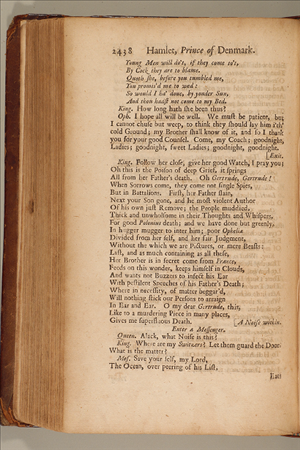 2438 Hamlet, Prince of Denmark.
Young Men will do't, if they come to't,
By Cock they are to blame.
Quoth she, before you tumbled me,
You promis'd me to wed:
So would I ha' done, by yonder Sun,
And thou hadst not come to my Bed.
King. How long hath she been thus?
Oph. I hope all will be well. We must be patient, but
I cannot chuse but weep, to think they should lay him i'th'
cold Ground; my Brother shall know of it, and so I thank
you for your good Counsel. Come, my Coach; goodnight,
Ladies; goodnight, sweet Ladies; goodnight, goodnight.
[Exit.
King. Follow her close, give her good Watch, I pray you;
Oh this is the Poison of deep Grief, it springs
All from her Father's Death. Oh Gertrude, Gertrude!
When Sorrows come, they come not single Spies,
But in Battalions. First, her Father slain,
Next your Son gone, and he most violent Author
Of his own just Remove; the People muddied,
Thick and unwholsome in their Thoughts and Whispers,
For good Polonius death; and we have done but greenly,
In hugger mugger to inter him; poor Ophelia
Divided from her self, and her fair Judgment,
Without the which we are Pictures, or meer Beasts:
Last, and as much containing as all these,
Her Brother is in secret come from France,
Feeds on this wonder, keeps himself in Clouds,
And wants not Buzzers to infect his Ear
With pestilent Speeches of his Father's Death;
Where in necessity, of matter beggar'd,
Will nothing stick our Persons to arraign
In Ear and Ear. O my dear Gertrude, this,
Like to a murdering Piece in many places,
Gives me superfluous Death. [A Noise within.
Enter a Messenger.
Queen. Alack, what Noise is this?
King. Where are my Switzers? Let them guard the Door.
What is the matter?
Mes. Save your self, my Lord,
The Ocean, over-peering of his List,
Eats